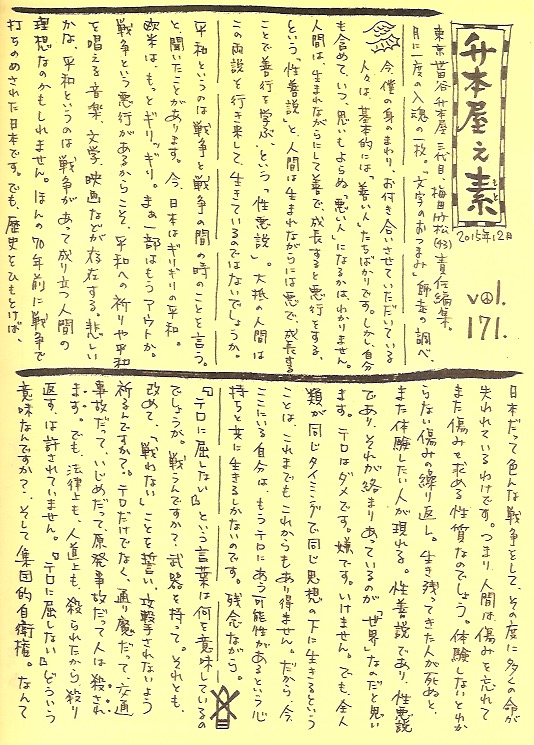 升本屋え素
もと
2015年12月
vol.
171.
東京 世谷 升本屋 三代目 梅田竹松(43)責任編集。
月に一度の入魂の一枚。「文字のおつまみ」師走の調べ。
今、僕の身のまわり、お付き合いさせていただいている
人々は、基本的には「善い人」たちばかりです。しかし、自分
も含めて、いつ、思いもよらぬ「悪い人」になるかは、わかりません。
人間は、生まれながらにして善で、成長すると悪行をする、
という「性善説」と、人間は生まれながらには悪で、成長する
ことで善行を学ぶ、という「性悪説」。大抵の人間は
この両説を行き来して、生きているのではないでしょうか。
平和というのは戦争と戦争の間の時のことを言う。
と聞いたことがあります。今、日本はギリギリの平和。
欧米は、もっとギリッギリ。まぁ一部はもうアウトか。
戦争という悪行があるからこそ、平和への祈りや平和
を唱える音楽、文学、映画などが存在する。悲しい
かな、平和というのは戦争があって成り立つ人間の
理想なのかもしれません。ほんの70年前に戦争で
打ちのめされた日本です。でも、歴史をひもとけば、
日本だって色んな戦争をして、その度に多くの命が
失われているわけです。つまり、人間は傷みを忘れて
また傷みを求める性質なのでしょう。体験しないとわか
らない傷みの繰り返し。生き残ってきた人が死ぬと、
また体験したい人が現れる。性善説であり、性悪説
であり、それが絡まりあっているのが「世界」なのだと思い
ます。テロはダメです。嫌です。いけません。でも、全人
類が同じタイミングで同じ思想の下に生きるという
ことは、これまでもこれからもあり得ません。だから、今
ここにいる自分は、もうテロにあう可能性があるという心
持ちと共に生きるしかないのです。残念ながら。
『テロに屈しない』という言葉は何を意味しているの
でしょうか。戦うんですか？武器を持って。それとも、
改めて、「戦わない」ことを誓い、攻撃手されないよう
祈るんですか？。テロだけでなく、通り魔だって、交通
事故だって、いじめだって、原発事故だって人は殺され
ます。でも、法律上も、人道上も、殺られたから、殺り
返す、は許されていません。『テロに屈しない』どういう
意味なんですか？そして、集団的自衛権。なんて